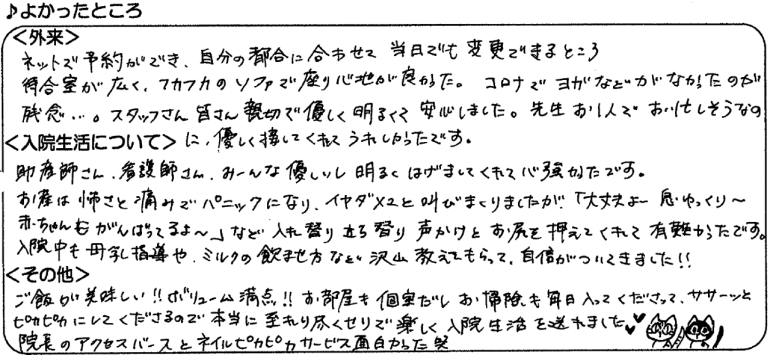 ♪よかったところ
<外来>
ネットで予約ができ、自分の都合に合わせて 当日でも 変更できるところ
待合室が広く、フカフカのソファで座り心地が良かった。 コロナで ヨガなどがなかったのが
残念…。スタッフさん皆さん親切で優しく明るくて 安心しました。先生お1人で お忙しそうなの
<入院生活について> に、優しく接してくれて うれしかったです。
助産師さん、看護師さん、みーんな優しいし 明るく はげましてくれて心強かったです。
お産は怖さと痛みでパニックになり、イヤダ×2と叫びまくりましたが、「大丈夫よー 息ゆっくり〜
赤ちゃんもがんばってるよ〜」など 入れ替り立ち替り 声かけと お尻を押えてくれて 有難かったです。
入院中も 母乳指導や、ミルクの飲ませ方など 沢山教えてもらって、自信がついてきました!!
<その他>
ご飯が美味しい!!ボリューム満点!! お部屋も個室だし お掃除も毎日入ってくださって、ササーッと
ピカピカにしてくださるので本当に至れり尽くせりで楽しく入院生活を送れました
院長のアクセスバースとネイルピカピカサービス面白かった笑